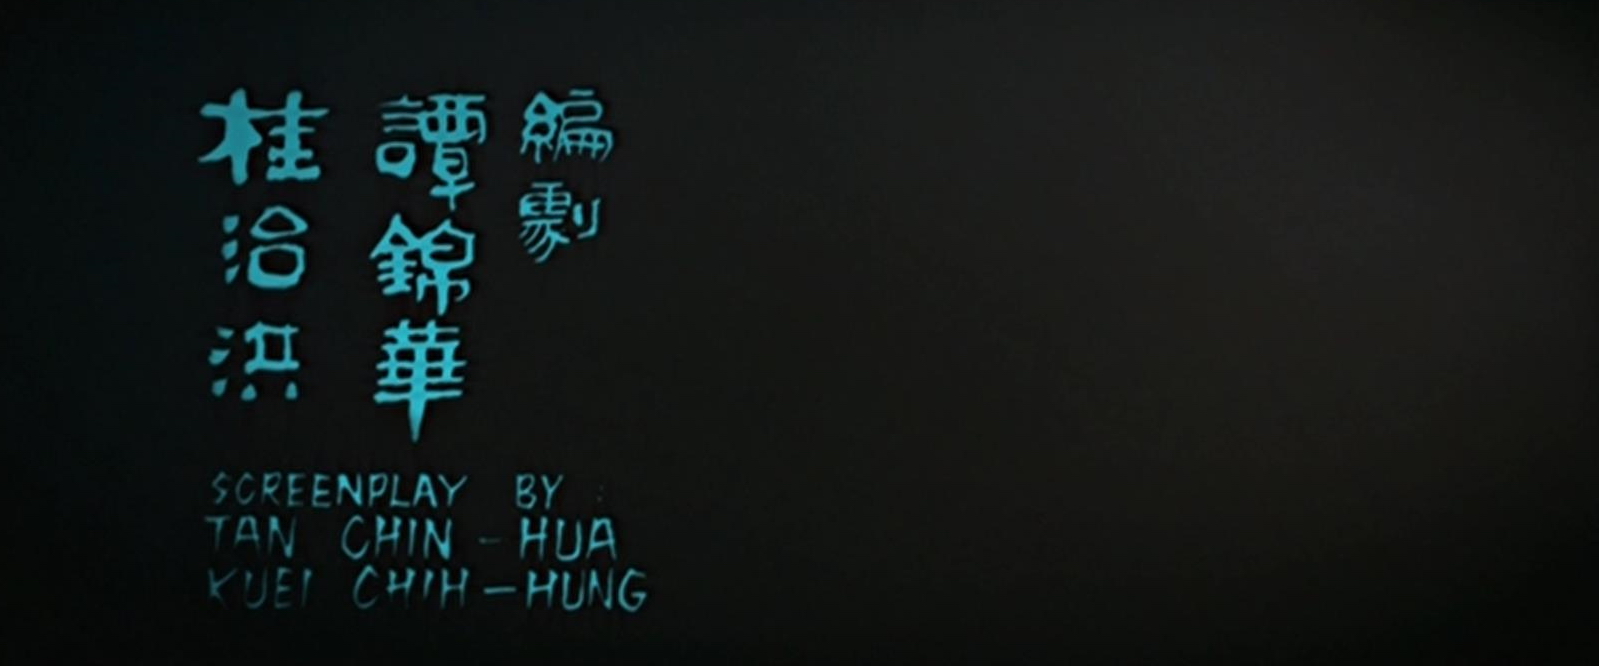 編劇
譚錦華
桂治洪
SCREENPLAY BY :
TAN CHIN-HUA
KUEI CHIH-HUNG